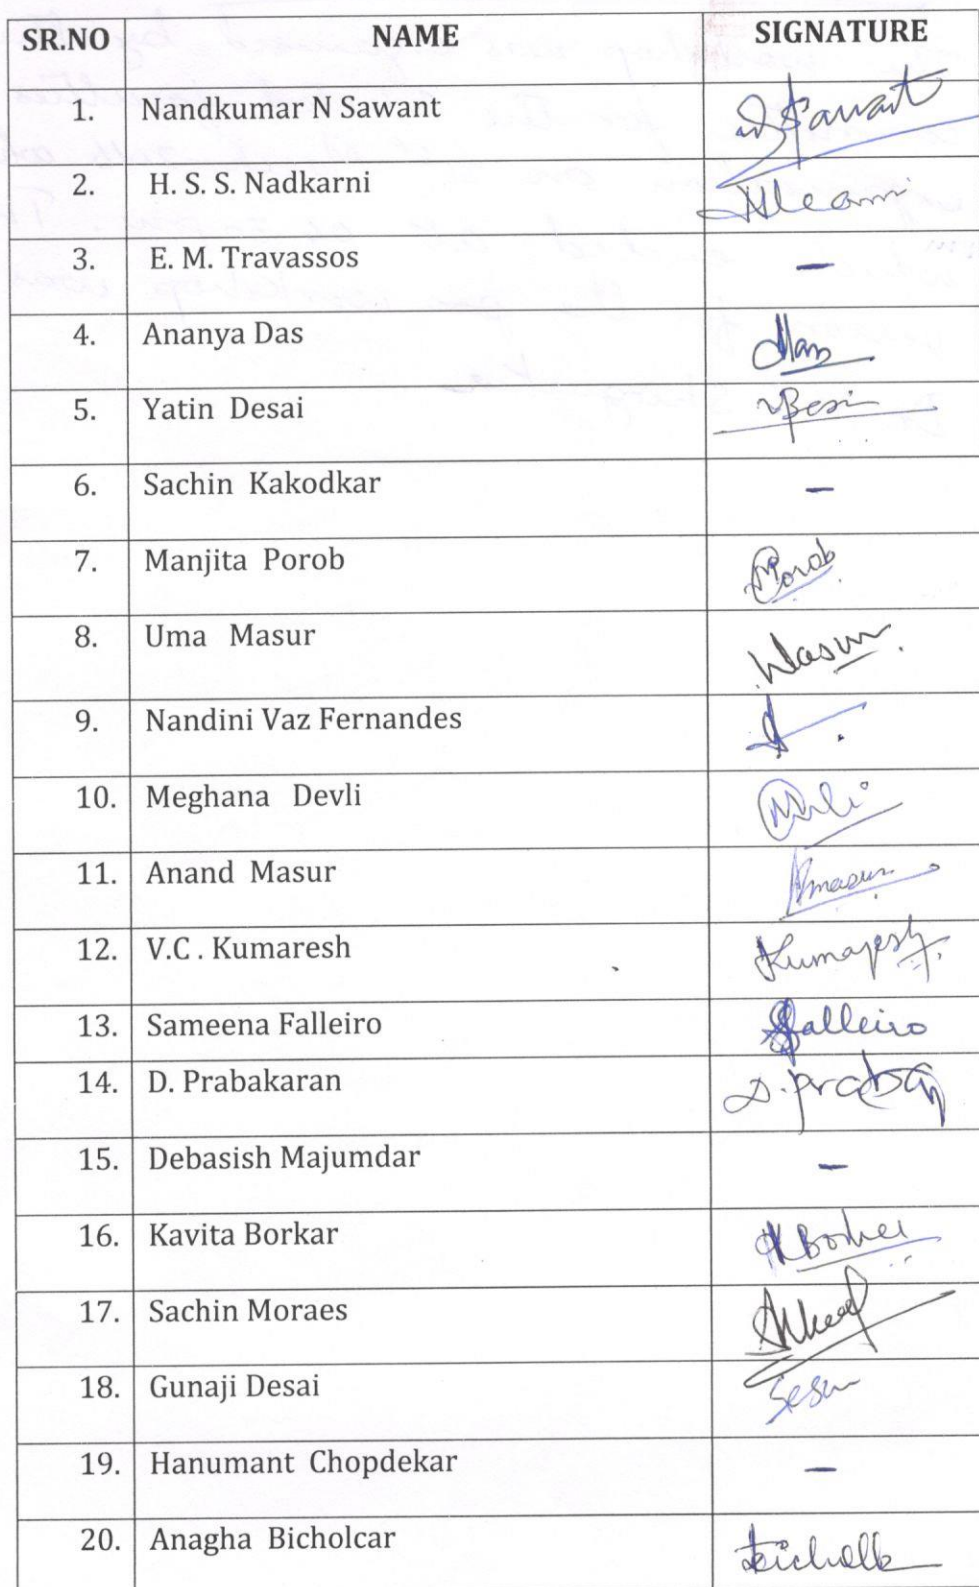 SR.NO NAME SIGNATURE
1. Nandkumar N Sawant Sawant
2. H. S. S. Nadkarni
3. E. M. Travassos –
4. Ananya Das Das
5. Yatin Desai
6. Sachin Kakodkar –
7. Manjita Porob Porob
8. Uma Masur Masur
9. Nandini Vaz Fernandes
10. Meghana Devli
11. Anand Masur Amasur
12. V.C. Kumaresh Kumaresh
13. Sameena Falleiro Falleiro
14. D. Prabakaran
15. Debasish Majumdar –
16. Kavita Borkar
17. Sachin Moraes
18. Gunaji Desai
19. Hanumant Chopdekar –
20. Anagha Bicholcar